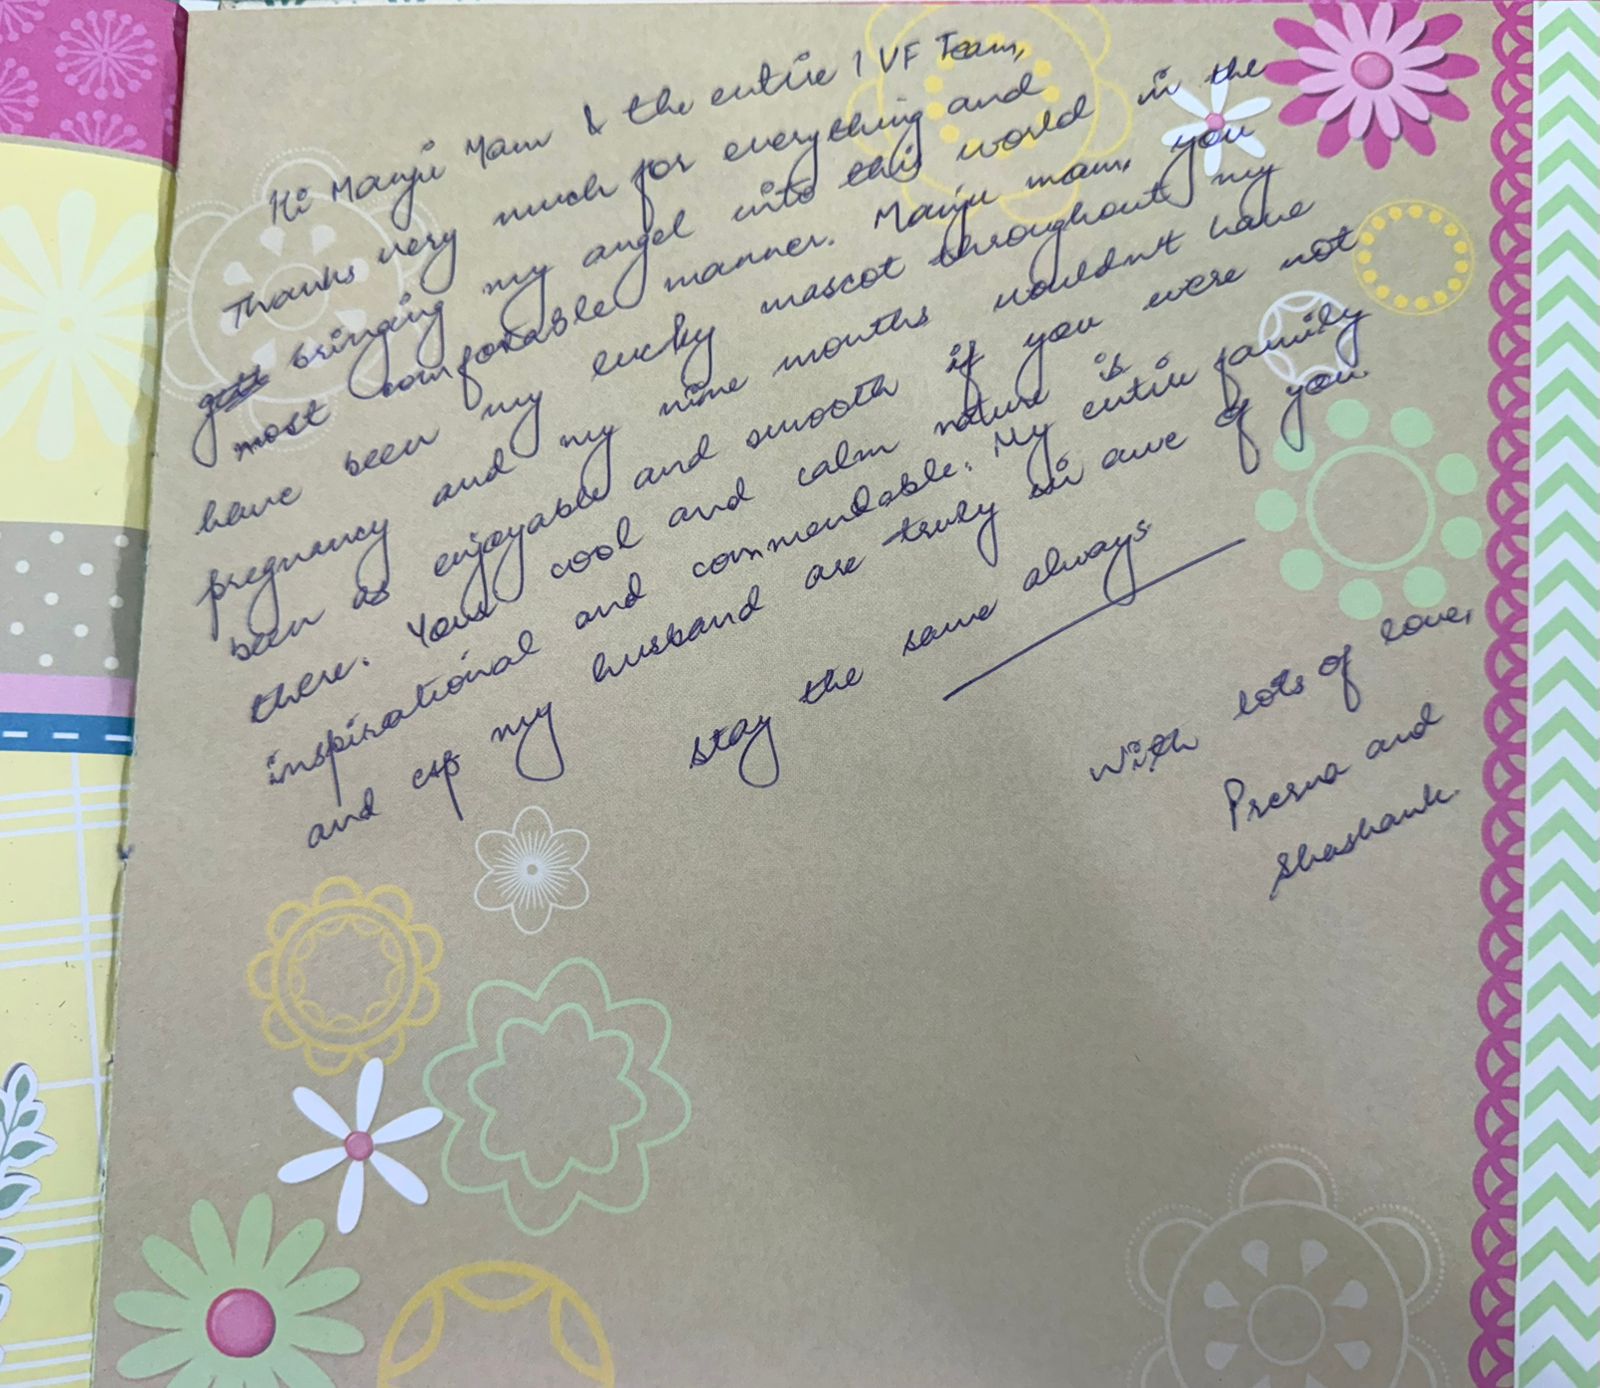 Hi Manju Mam & the entire IVF Team,
Thanks very much for everything and
bringing my angel into this world in the
most comfortable manner. Manju mam, you
have been my lucky mascot throughout my
pregnancy and my nine months wouldn't have
been as enjoyable and smooth if you were not
there. Your cool and calm nature is
inspirational and commendable. My entire family
and esp my husband are truly in awe of you.
stay the same always
With lots of love,
Prerna and
Shashank.